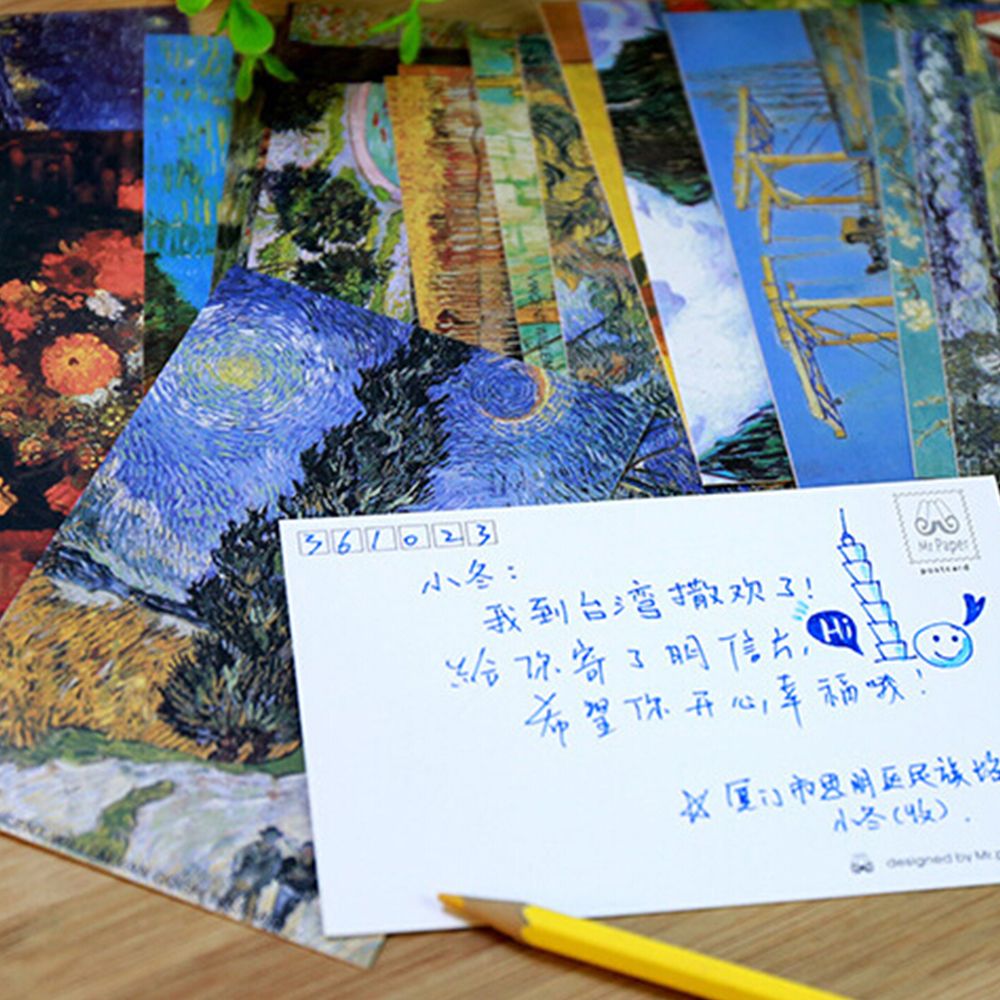 361023
Mr.Paper
postcard
小冬:
我到台湾撒欢了!
Hi
给你寄了明信片,
希望你开心,幸福哦!
☆厦门市思明区民族路
小冬(收).
designed by Mr.p